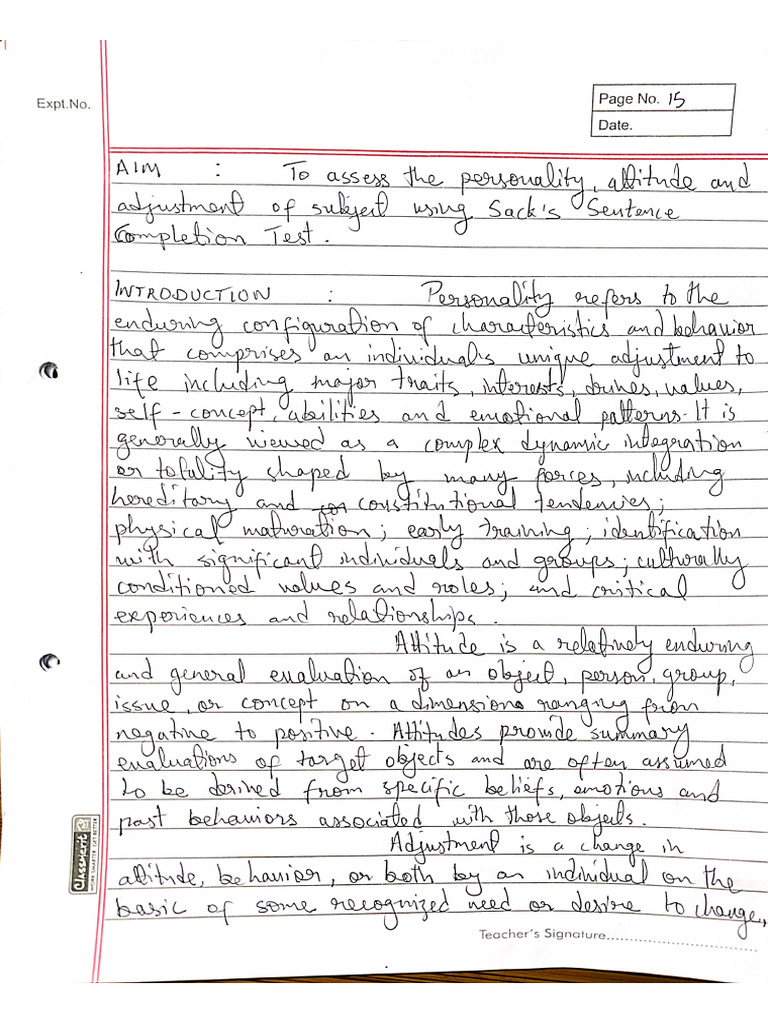 Expt.No.
Page No. 15
Date.
AIM : To assess the personality, attitude and
adjustment of subject using Sack's Sentence
Completion Test.
INTRODUCTION : Personality refers to the
enduring configuration of characteristics and behavior
that comprises an individual's unique adjustment to
life including major traits, interests, drives, values,
self-concept, abilities and emotional patterns. It is
generally viewed as a complex dynamic integration
or totality shaped by many forces, including
hereditary and constitutional tendencies;
physical maturation; early training; identification
with significant individuals and groups; culturally
conditioned values and roles; and critical
experiences and relationships.
Attitude is a relatively enduring
and general evaluation of an object, person, group,
issue, or concept on a dimensions ranging from
negative to positive. Attitudes provide summary
evaluations of target objects and are often assumed
to be derived from specific beliefs, emotions and
past behaviors associated with those objects.
Adjustment is a change in
attitude, behavior, or both by an individual on the
basic of some recognized need or desire to change,
Teacher's Signature
Classmate
WORK SMARTER. GET BETTER